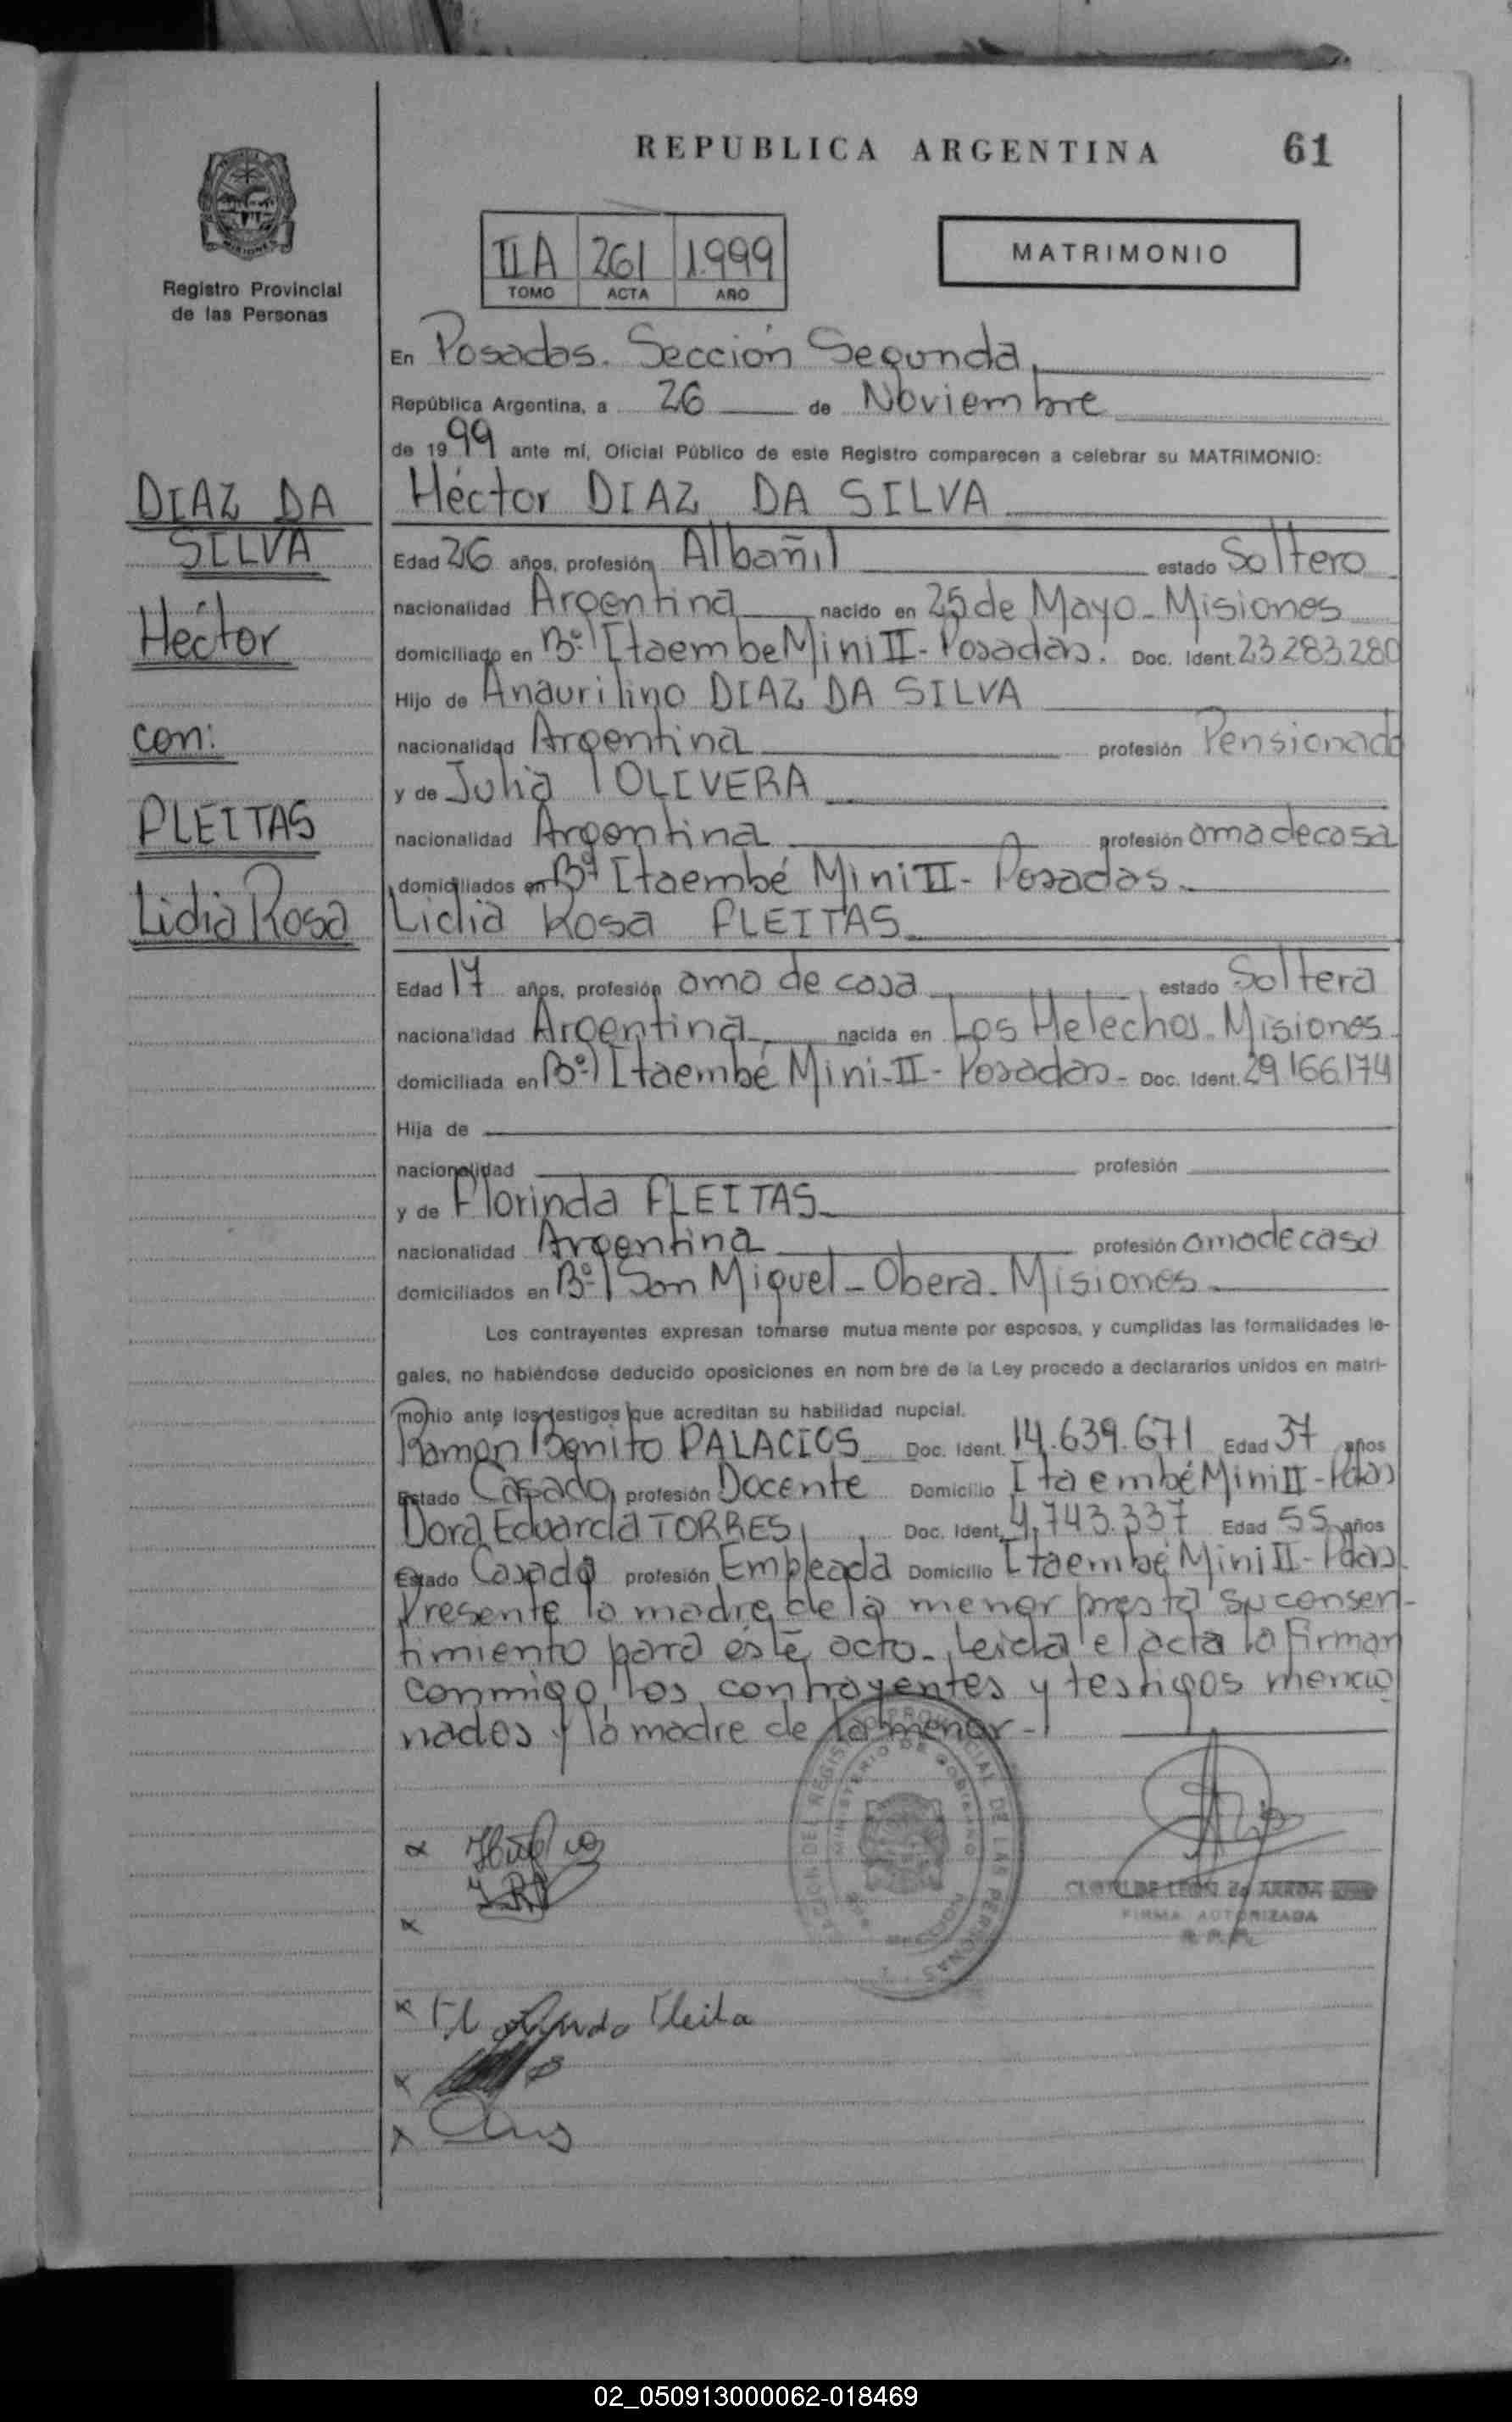 REPUBLICA ARGENTINA 61
Registro Provincial
de las Personas
II A 261 1.999
TOMO ACTA AÑO
MATRIMONIO
En Posadas. Sección Segunda
República Argentina, a 26 de Noviembre
de 1999 ante mí, Oficial Público de este Registro comparecen a celebrar su MATRIMONIO:
DIAZ DA
SILVA
Héctor
con:
FLEITAS
Lidia Rosa
Héctor DIAZ DA SILVA
Edad 26 años, profesión Albañil estado Soltero
nacionalidad Argentina nacido en 25 de Mayo - Misiones
domiciliado en Bº Itaembe Mini II - Posadas. Doc. Ident. 23.283.280
Hijo de Anaurilino DIAZ DA SILVA
nacionalidad Argentina profesión Pensionado
y de Julia OLIVERA
nacionalidad Argentina profesión ama de casa
domiciliados en Bº Itaembé Mini II - Posadas.
Lidia Rosa FLEITAS
Edad 17 años, profesión ama de casa estado Soltera
nacionalidad Argentina nacida en Los Helechos - Misiones
domiciliada en Bº Itaembé Mini - II - Posadas - Doc. Ident. 29.166.174
Hija de
nacionalidad profesión
y de Florinda FLEITAS
nacionalidad Argentina profesión ama de casa
domiciliados en Bº San Miguel - Obera - Misiones
Los contrayentes expresan tomarse mutua mente por esposos, y cumplidas las formalidades le-
gales, no habiéndose deducido oposiciones en nom bre de la Ley procedo a declararlos unidos en matri-
monio ante los testigos que acreditan su habilidad nupcial.
Ramón Benito PALACIOS Doc. Ident. 14.639.671 Edad 37 años
Estado Casado profesión Docente Domicilio Itaembé Mini II - Pdas
Dora Eduarda TORRES Doc. Ident. 4.743.337 Edad 55 años
Estado Casada profesión Empleada Domicilio Itaembé Mini II - Pdas
Presente la madre de la menor presta su consen-
timiento para éste acto - Leída el acta la firman
conmigo, los contrayentes y testigos mencio
nados y la madre de la menor -
FIRMA AUTORIZADA
Fleita
02_050913000062-018469